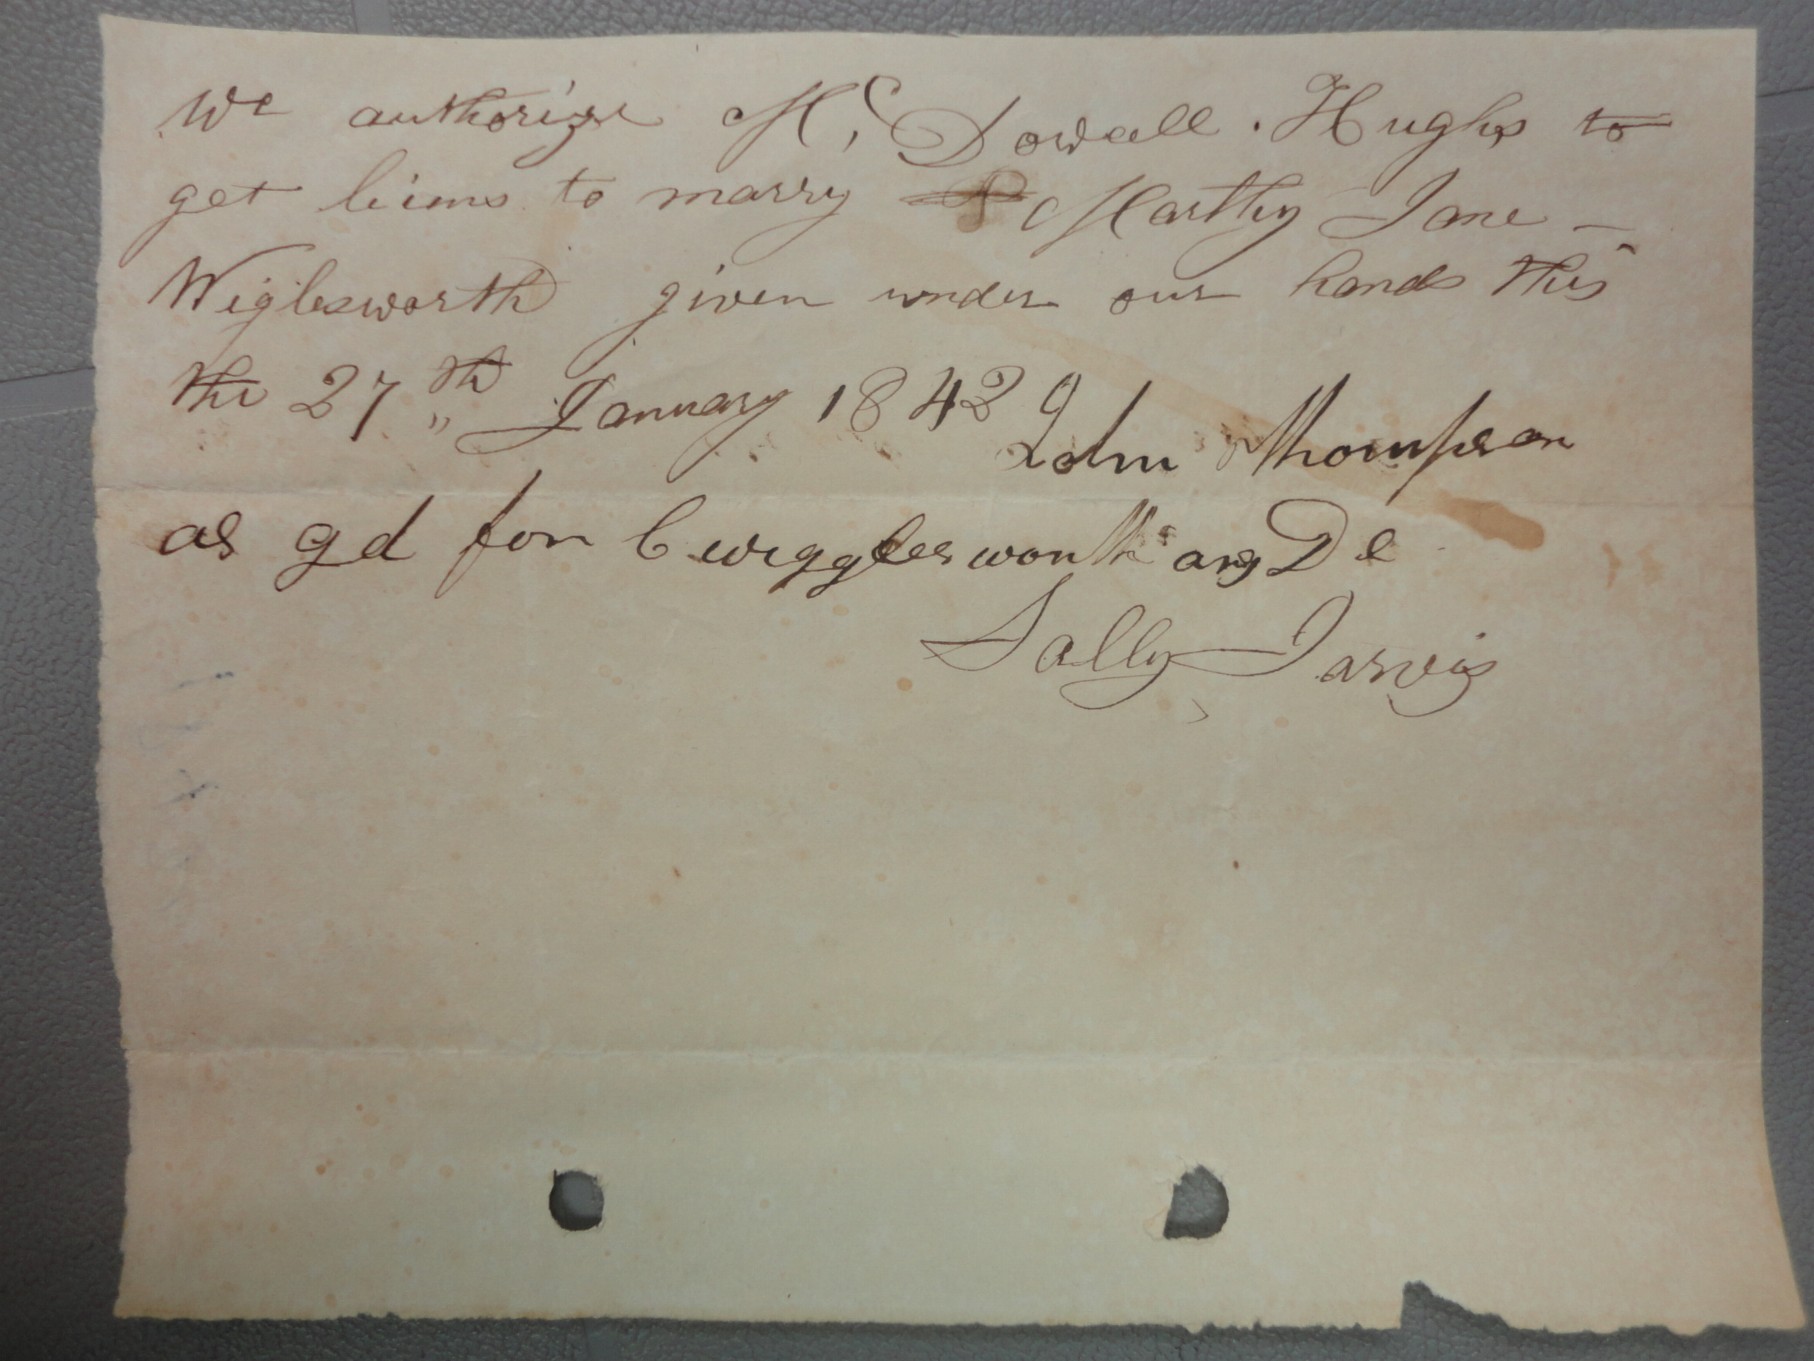 We authorize Mc Dowell Hughs to
get licens to marry Marthy Jane
Wiglesworth given under our hands this
the 27th January 1842
John Thompson
as gd for C wigglesworth
Sally Jarvis